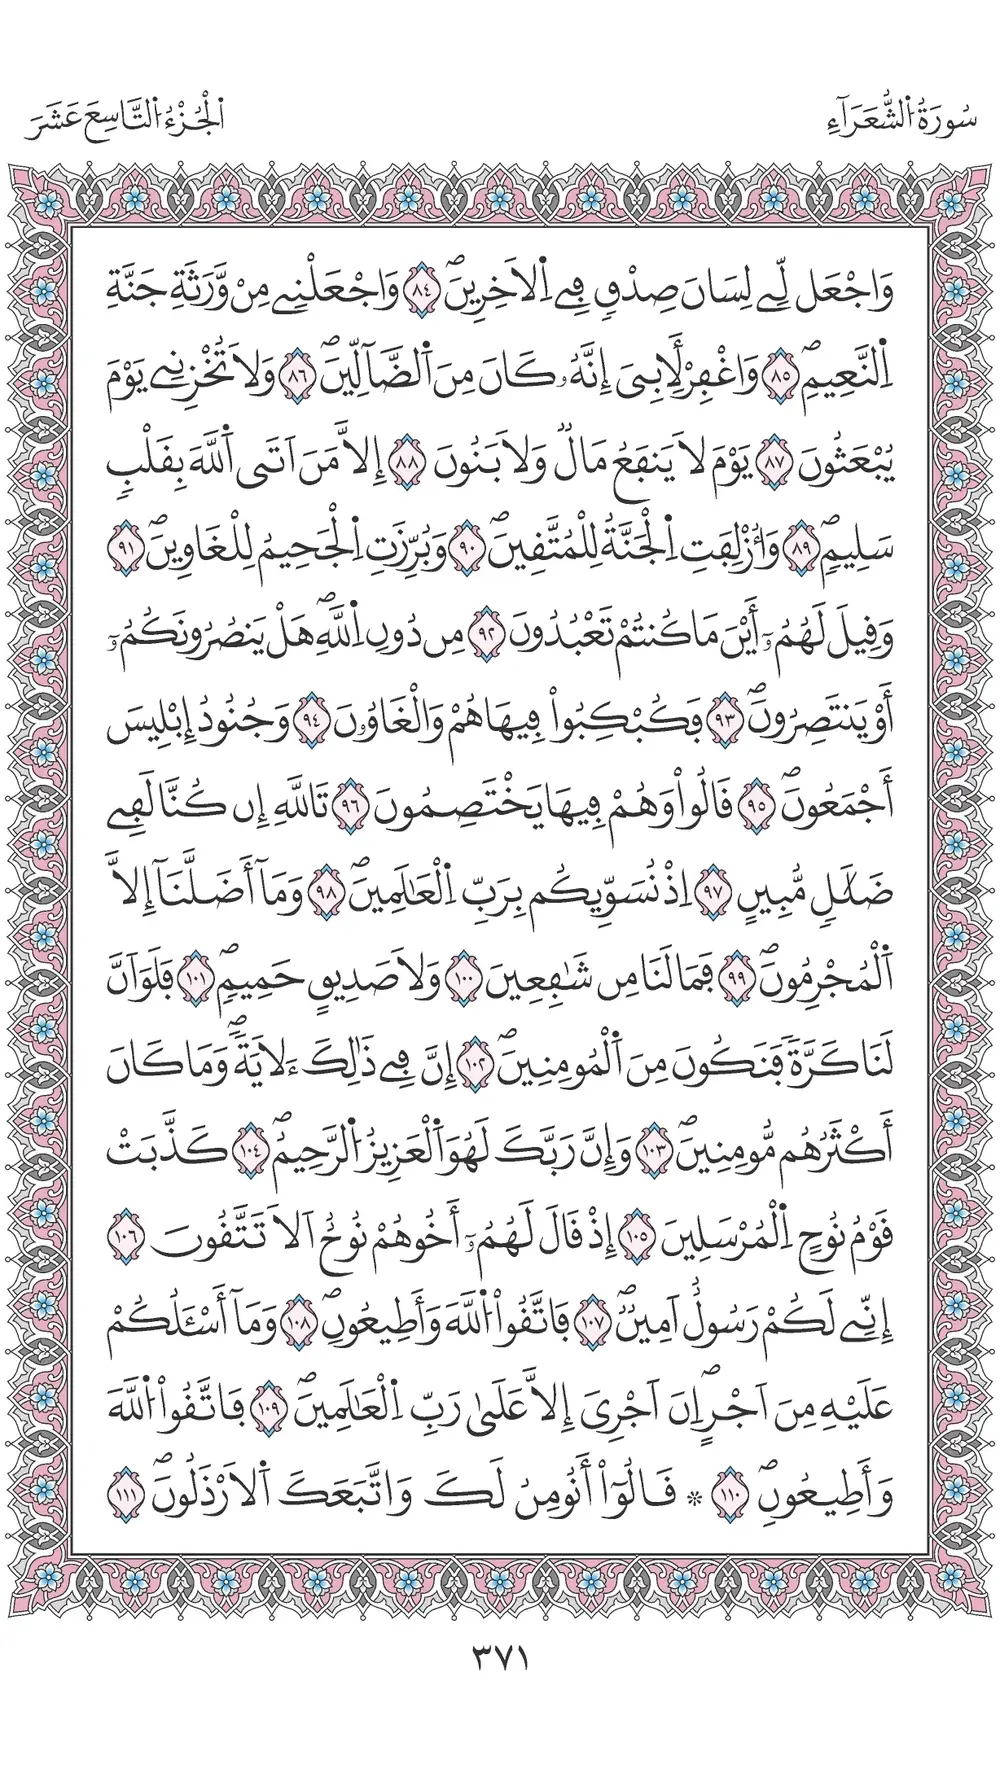 سُورَةُ الشُّعَرَآءِ
الْجُزْءُ التَّاسِعَ عَشَرَ
وَاجْعَل لِّے لِسَانَ صِدْقٖ فِے اِ۬لَاخِرِينَۖ ٨٤ وَاجْعَلْنِے مِنْ وَّرَثَةِ جَنَّةِ
اِ۬لنَّعِيمِۖ ٨٥ وَاغْفِرْ لِأَبِيَ إِنَّهُۥ كَانَ مِنَ اَ۬لضَّآلِّينَۖ ٨٦ وَلَا تُخْزِنِے يَوْمَ
يُبْعَثُونَ ٨٧ يَوْمَ لَا يَنفَعُ مَالٞ وَلَا بَنُونَ ٨٨ إِلَّا مَنَ اَتَى اَ۬للَّهَ بِقَلْبٖ
سَلِيمٖۖ ٨٩ وَأُزْلِفَتِ اِ۬لْجَنَّةُ لِلْمُتَّقِينَۖ ٩٠ وَبُرِّزَتِ اِ۬لْجَحِيمُ لِلْغَاوِينَۖ ٩١
وَقِيلَ لَهُمُۥٓ أَيْنَ مَا كُنتُمْ تَعْبُدُونَ ٩٢ مِن دُونِ اِ۬للَّهِۖ هَلْ يَنصُرُونَكُمُۥٓ
أَوْ يَنتَصِرُونَۖ ٩٣ فَكُبْكِبُواْ فِيهَا هُمْ وَالْغَاوُۥنَ ٩٤ وَجُنُودُ إِبْلِيسَ
أَجْمَعُونَۖ ٩٥ قَالُواْ وَهُمْ فِيهَا يَخْتَصِمُونَ ٩٦ تَاللَّهِ إِن كُنَّا لَفِے
ضَلَٰلٖ مُّبِينٍ ٩٧ اِذْ نُسَوِّيكُم بِرَبِّ اِ۬لْعَٰلَمِينَۖ ٩٨ وَمَآ أَضَلَّنَآ إِلَّا
اَ۬لْمُجْرِمُونَۖ ٩٩ فَمَا لَنَا مِن شَٰفِعِينَ ١٠٠ وَلَا صَدِيقٍ حَمِيمٖۖ ١٠١ فَلَوَ اَنَّ
لَنَا كَرَّةٗ فَنَكُونَ مِنَ اَ۬لْمُومِنِينَۖ ١٠٢ إِنَّ فِے ذَٰلِكَ ءَلَايَةٗۖ وَمَا كَانَ
أَكْثَرُهُم مُّومِنِينَۖ ١٠٣ وَإِنَّ رَبَّكَ لَهُوَ اَ۬لْعَزِيزُ اُ۬لرَّحِيمُۖ ١٠٤ كَذَّبَتْ
قَوْمُ نُوحٍ اِ۬لْمُرْسَلِينَ ١٠٥ إِذْ قَالَ لَهُمُۥٓ أَخُوهُمْ نُوحٌ اَلَا تَتَّقُونَ ١٠٦
إِنِّے لَكُمْ رَسُولٌ اَمِينٞۖ ١٠٧ فَاتَّقُواْ اُ۬للَّهَ وَأَطِيعُونِۖ ١٠٨ وَمَآ أَسْـَٔلُكُمْ
عَلَيْهِ مِنَ اَجْرٍۖ اِنَ اَجْرِيَ إِلَّا عَلَىٰ رَبِّ اِ۬لْعَٰلَمِينَۖ ١٠٩ فَاتَّقُواْ اُ۬للَّهَ
وَأَطِيعُونِۖ ١١٠ ۞ قَالُوٓاْ أَنُومِنُ لَكَ وَاتَّبَعَكَ اَ۬لَارْذَلُونَۖ ١١١
٣٧١